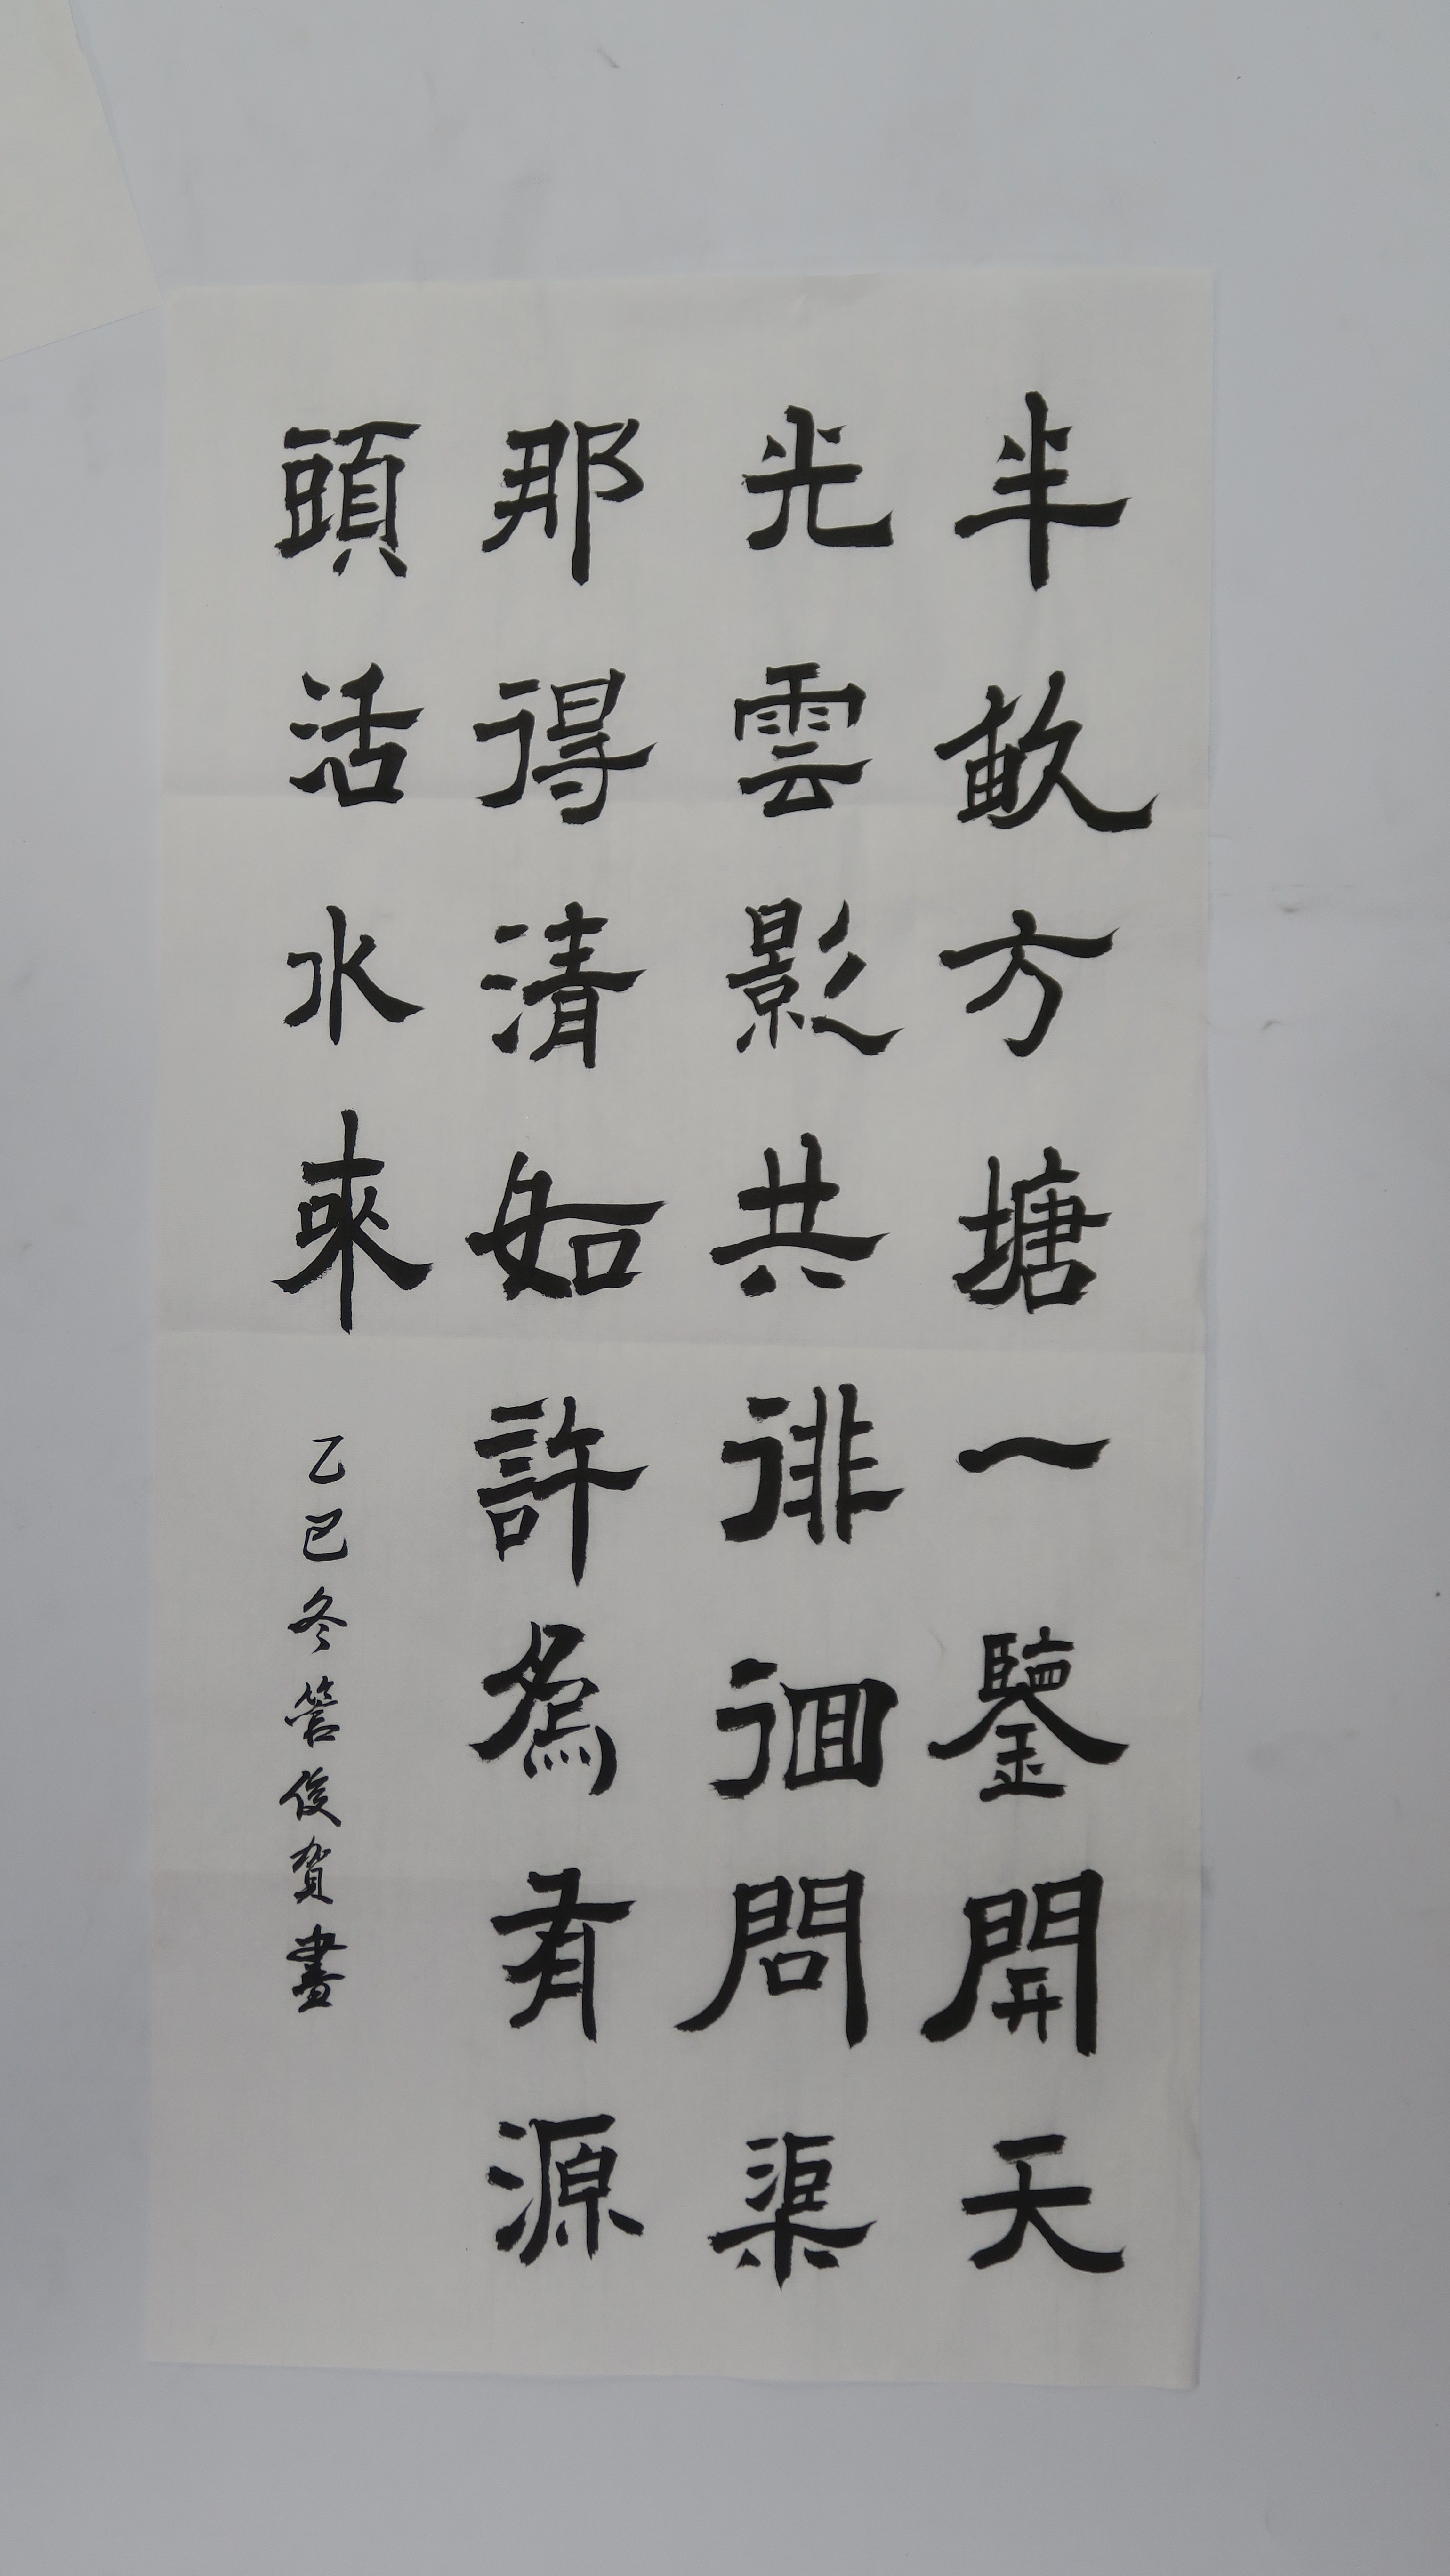 半畝方塘一鑒開天
光雲影共徘徊問渠
那得清如許為有源
頭活水來
乙巳冬管俊賀書